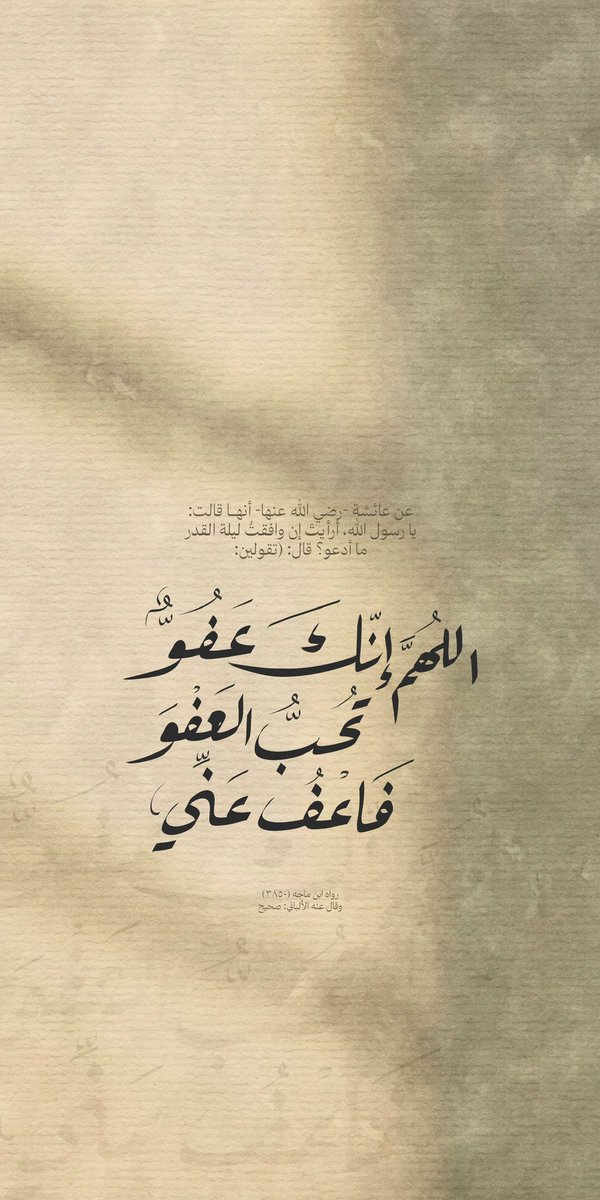 عن عائشة -رضي الله عنها- أنهـا قالت:
يا رسول الله، أرأيتَ إن وافقتُ ليلة القدر
ما أدعو؟ قال: (تقولين:
اللهُمَّ إنّك عَفُوٌّ
تُحبُّ العَفْوَ
فَاعْفُ عَنِّي
رواه ابن ماجه (٣٨٥٠)
وقال عنه الألباني: صحيح